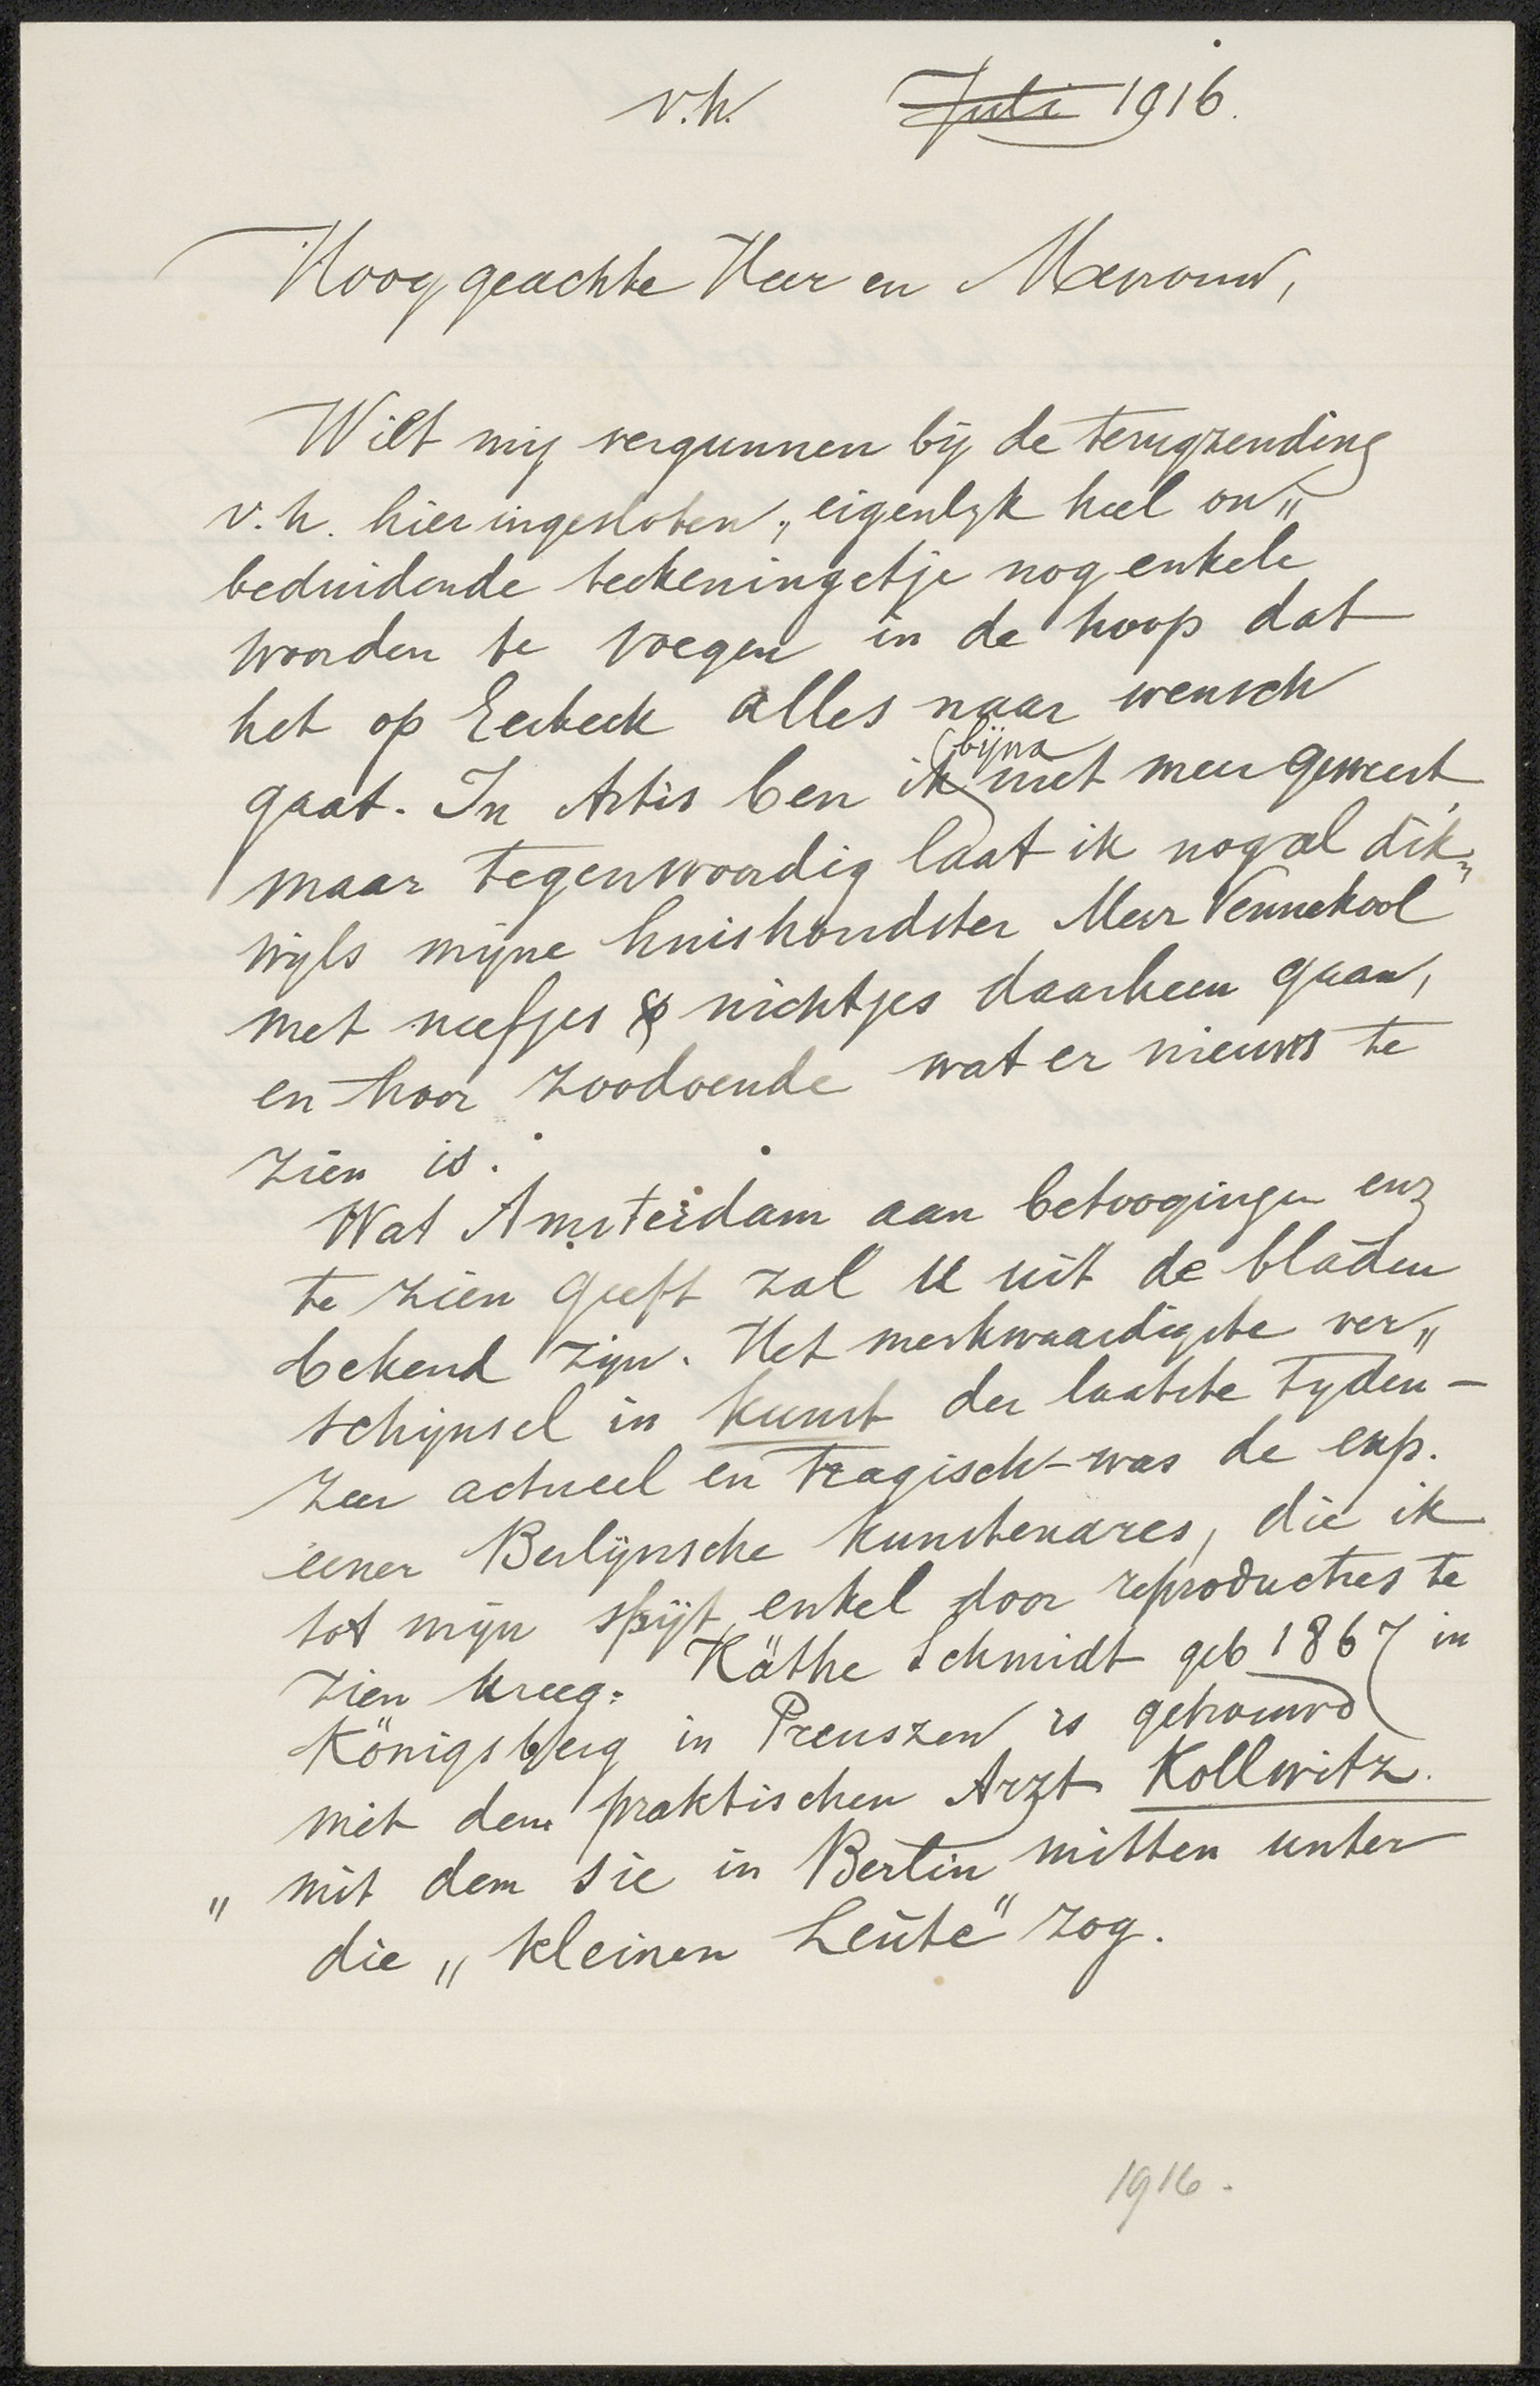 v.h. Juli 1916.
Hooggeachte Heer en Mevrouw,
Wilt mij vergunnen bij de terugzending
v.h. hier ingesloten, eigenlyk heel on„
beduidende teekeningetje nog enkele
woorden te voegen in de hoop dat
het op Eerbeek alles naar wensch
bijna
gaat. In Artis ben ik niet meer geweest,
maar tegenwoordig laat ik nogal dik„
wyls mijne huishoudster Mevr Vennekool
met neefjes & nichtjes daarheen gaan,
en hoor zoodoende wat er nieuws te
zien is.
Wat Amsterdam aan betoogingen enz
te zien geeft zal U uit de bladen
bekend zijn. Het merkwaardigste ver„
schijnsel in kunst der laatste tyden –
zeer actueel en tragisch – was de exp.
eener Berlijnsche kunstenares, die ik
tot mijn spijt enkel door reproducties te
zien kreeg. Käthe Schmidt geb 1867 in
Königsberg in Preuszen is getrouwd
mit dem praktischen Arzt Kollwitz.
„ mit dem sie in Berlin mitten unter
die „ kleinen Leute" zog.
1916.